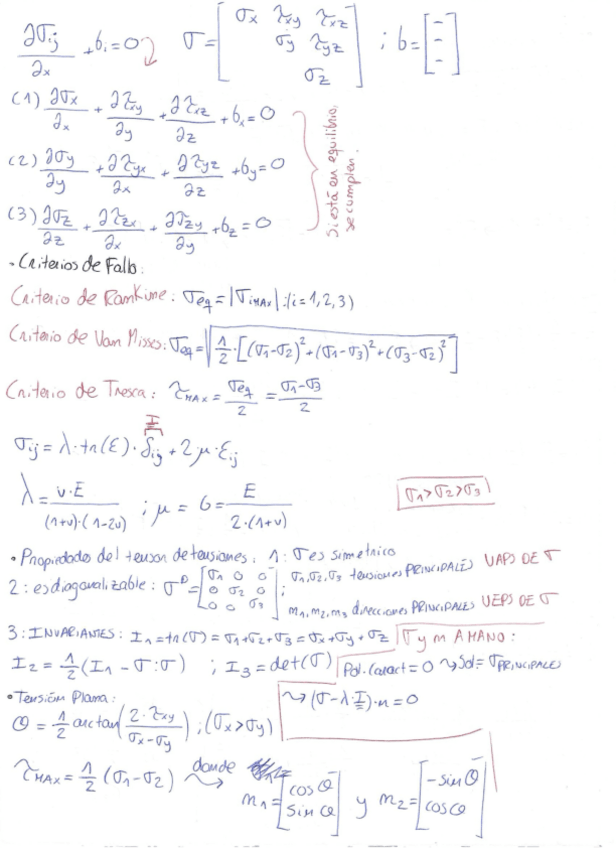 ∂σij/∂x + bi = 0 ; σ = [σx τxy τxz ; σy τyz ; σz] ; b = [- ; - ; -]
(1) ∂σx/∂x + ∂τxy/∂y + ∂τxz/∂z + bx = 0
(2) ∂σy/∂y + ∂τyx/∂x + ∂τyz/∂z + by = 0
(3) ∂σz/∂z + ∂τzx/∂x + ∂τzy/∂y + bz = 0
Si está en equilibrio,
se cumplen.
• Criterios de Fallo:
Criterio de RamKime: σeq = |σiMAX| ; (i = 1, 2, 3)
Criterio de Vam Misses: σeq = √(1/2 · [(σ1-σ2)² + (σ1-σ3)² + (σ3-σ2)²])
Criterio de Tresca: τMAX = σeq/2 = (σ1-σ3)/2
I
σij = λ · tr(ε) · δij + 2μ · εij
λ = ν·E/((1+ν)·(1-2ν)) ; μ = G = E/(2·(1+ν))
σ1 > σ2 > σ3
• Propiedades del tensor de tensiones: 1: σ es simetrico
2: es diagonalizable: σD = [σ1 0 0 ; 0 σ2 0 ; 0 0 σ3] ; σ1, σ2, σ3 tensiones PRINCIPALES VAPS DE σ
m1, m2, m3 direcciones PRINCIPALES VEPS DE σ
3: INVARIANTES: I1 = tr(σ) = σ1+σ2+σ3 = σx+σy+σz
σ y m A MANO:
I2 = 1/2 (I1 - σ:σ) ; I3 = det(σ)
Pol. Caract = 0 ⇝ Sol = σPRINCIPALES
⇝ (σ - λ·I)·m = 0
• Tensión Plama:
θ = 1/2 arctan(2·τxy/(σx-σy)) ; (σx > σy)
τMAX = 1/2 (σ1-σ2) donde m1 = [cosθ ; sinθ] y m2 = [-sinθ ; cosθ]